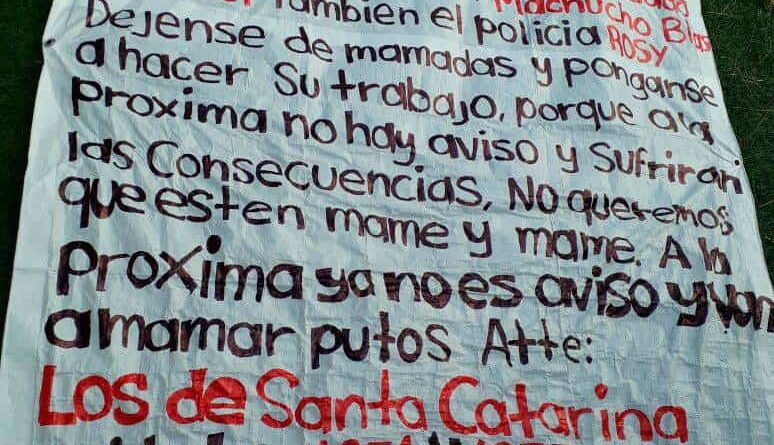 Machucho Blas
También el policia ROSY
Dejense de mamadas y ponganse
a hacer su trabajo, porque a la
proxima no hay aviso y sufriran
las Consecuencias, No queremos
que esten mame y mame. A la
proxima ya no es aviso y van
a mamar putos Atte:
Los de Santa Catarina